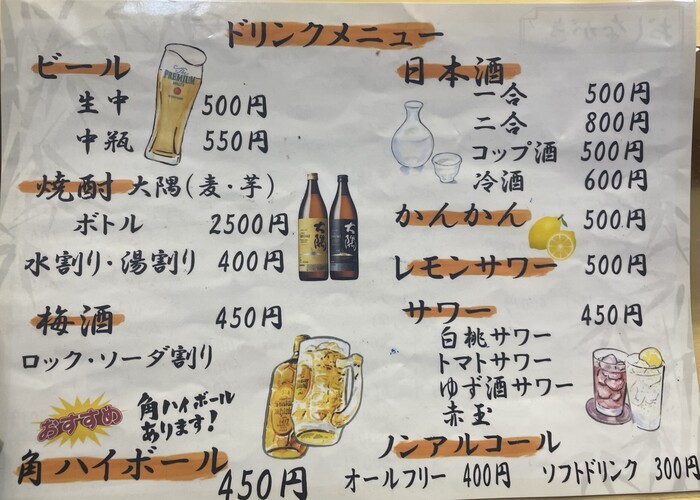 ドリンクメニュー
ビール
生中 500円
中瓶 550円
焼酎 大隅(麦・芋)
ボトル 2500円
水割り・湯割り 400円
梅酒 450円
ロック・ソーダ割り
おすすめ
角ハイボール
あります!
角ハイボール 450円
日本酒
一合 500円
二合 800円
コップ酒 500円
冷酒 600円
かんかん 500円
レモンサワー 500円
サワー 450円
白桃サワー
トマトサワー
ゆず酒サワー
赤玉
ノンアルコール
オールフリー 400円 ソフトドリンク 300円
PREMIUM
大隅
大隅